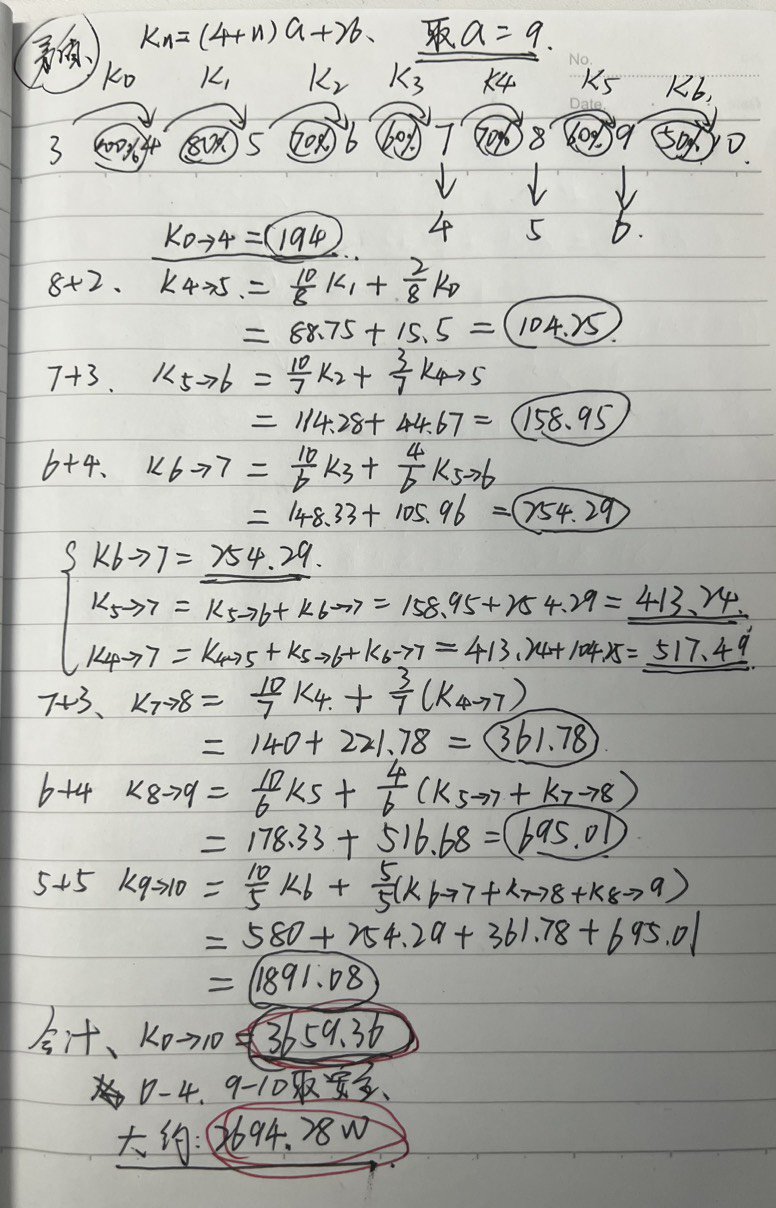 Kn=(4+n)a+26、 取a=9.
No.
Date.
K0 K1 K2 K3 K4 K5 K6
3 100% 4 80% 5 70% 6 60% 7 70% 8 60% 9 50% 10.
4 5 6.
K0→4 = 194
8+2、 K4→5 = 10/8 K1 + 2/8 K0
= 88.75 + 15.5 = 104.25
7+3. K5→6 = 10/7 K2 + 3/7 K4→5
= 114.28 + 44.67 = 158.95
6+4、 K6→7 = 10/6 K3 + 4/6 K5→6
= 148.33 + 105.96 = 254.29
{ K6→7 = 254.29.
K5→7 = K5→6 + K6→7 = 158.95 + 254.29 = 413.24.
K4→7 = K4→5 + K5→6 + K6→7 = 413.24 + 104.25 = 517.49
7+3、 K7→8 = 10/7 K4 + 3/7 (K4→7)
= 140 + 221.78 = 361.78
6+4 K8→9 = 10/6 K5 + 4/6 (K5→7 + K7→8)
= 178.33 + 516.68 = 695.01
5+5 K9→10 = 10/5 K6 + 5/5 (K6→7 + K7→8 + K8→9)
= 580 + 254.29 + 361.78 + 695.01
= 1891.08
合计、 K0→10 = 3659.36
0-4. 9-10取安全、
大约: 2694.28W